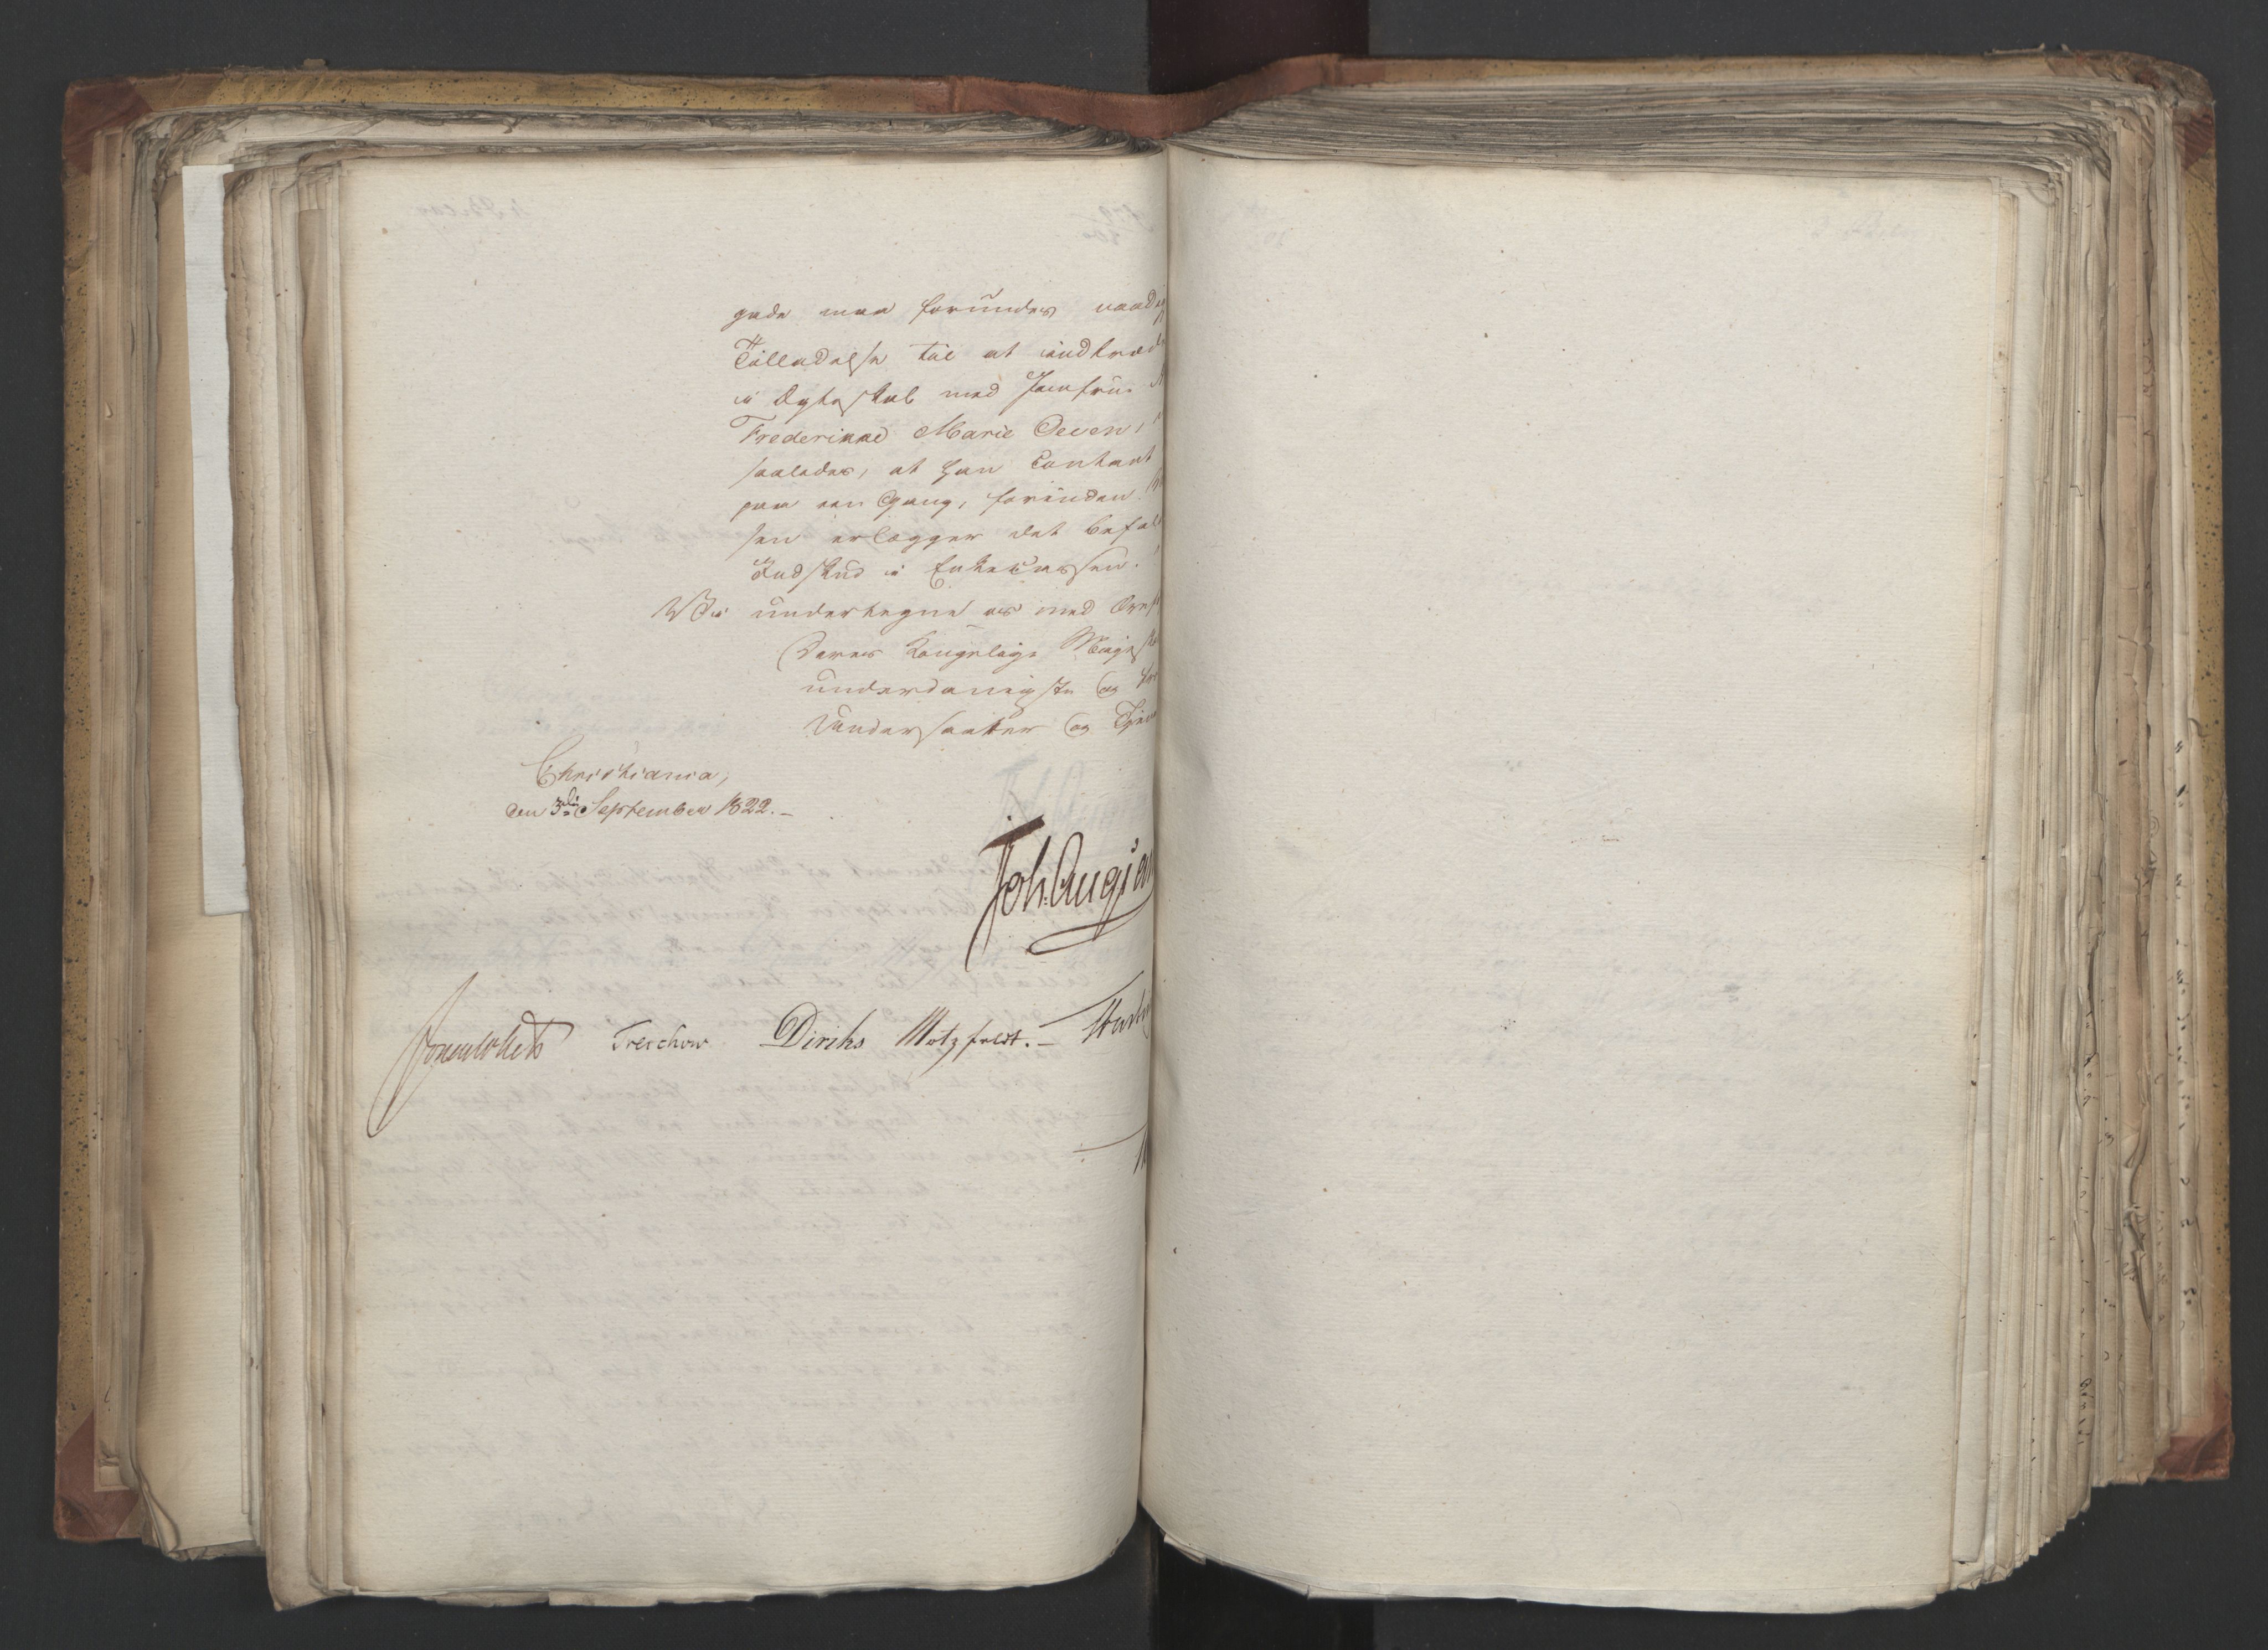 gede maa forundes naadig
Tilladelse til at indtræde
i Ægteskab med Jomfrue
Frederikke Marie Deeen,
saaledes, at han contant
paa een Gang, forinden
sen erlægger det befal
Indskud i Enkecassen.
Vi undertegne os med
Deres Kongelige Majest
underdanigste og
Undersaatter og Tjen
Christiania,
den 3die September 1822.
Joh. Aug San
Sommerhielm Treschow Diriks Motzfeldt.